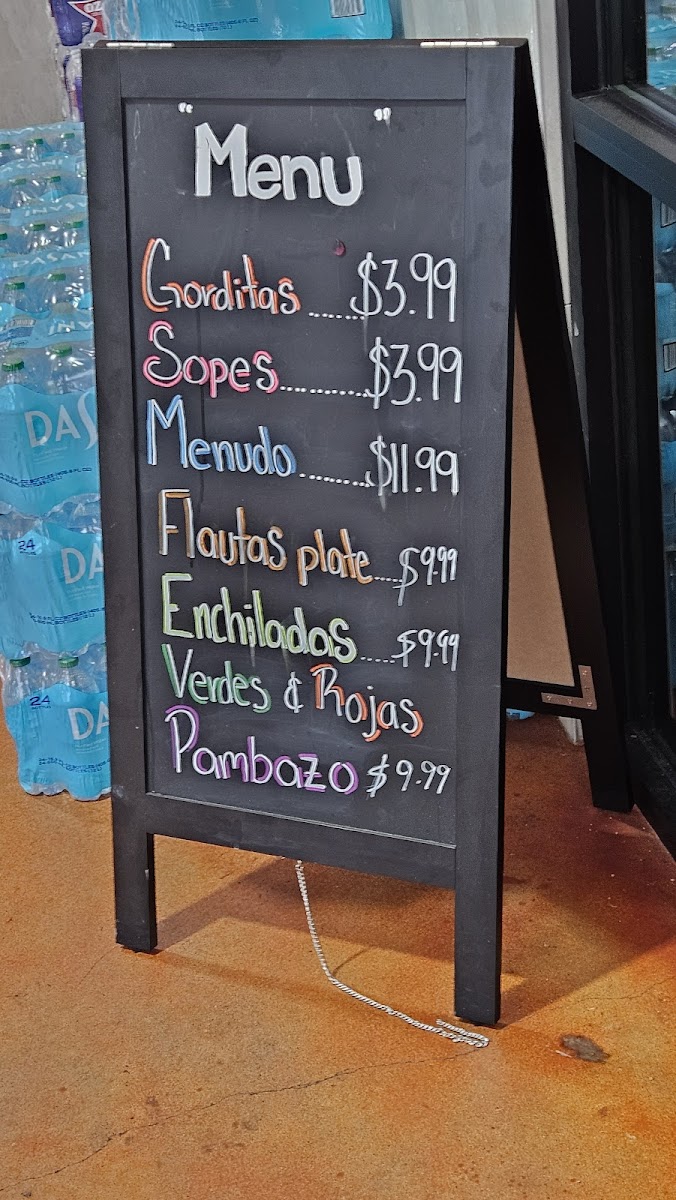 "Menu"
Gorditas ...... $3.99
Sopes .......... $3.99
Menudo ........ $11.99
Flautas plate ..... $9.99
Enchiladas ..... $9.99
Verdes & Rojas
Pambazo $9.99
DAS
24
DA
24
DA